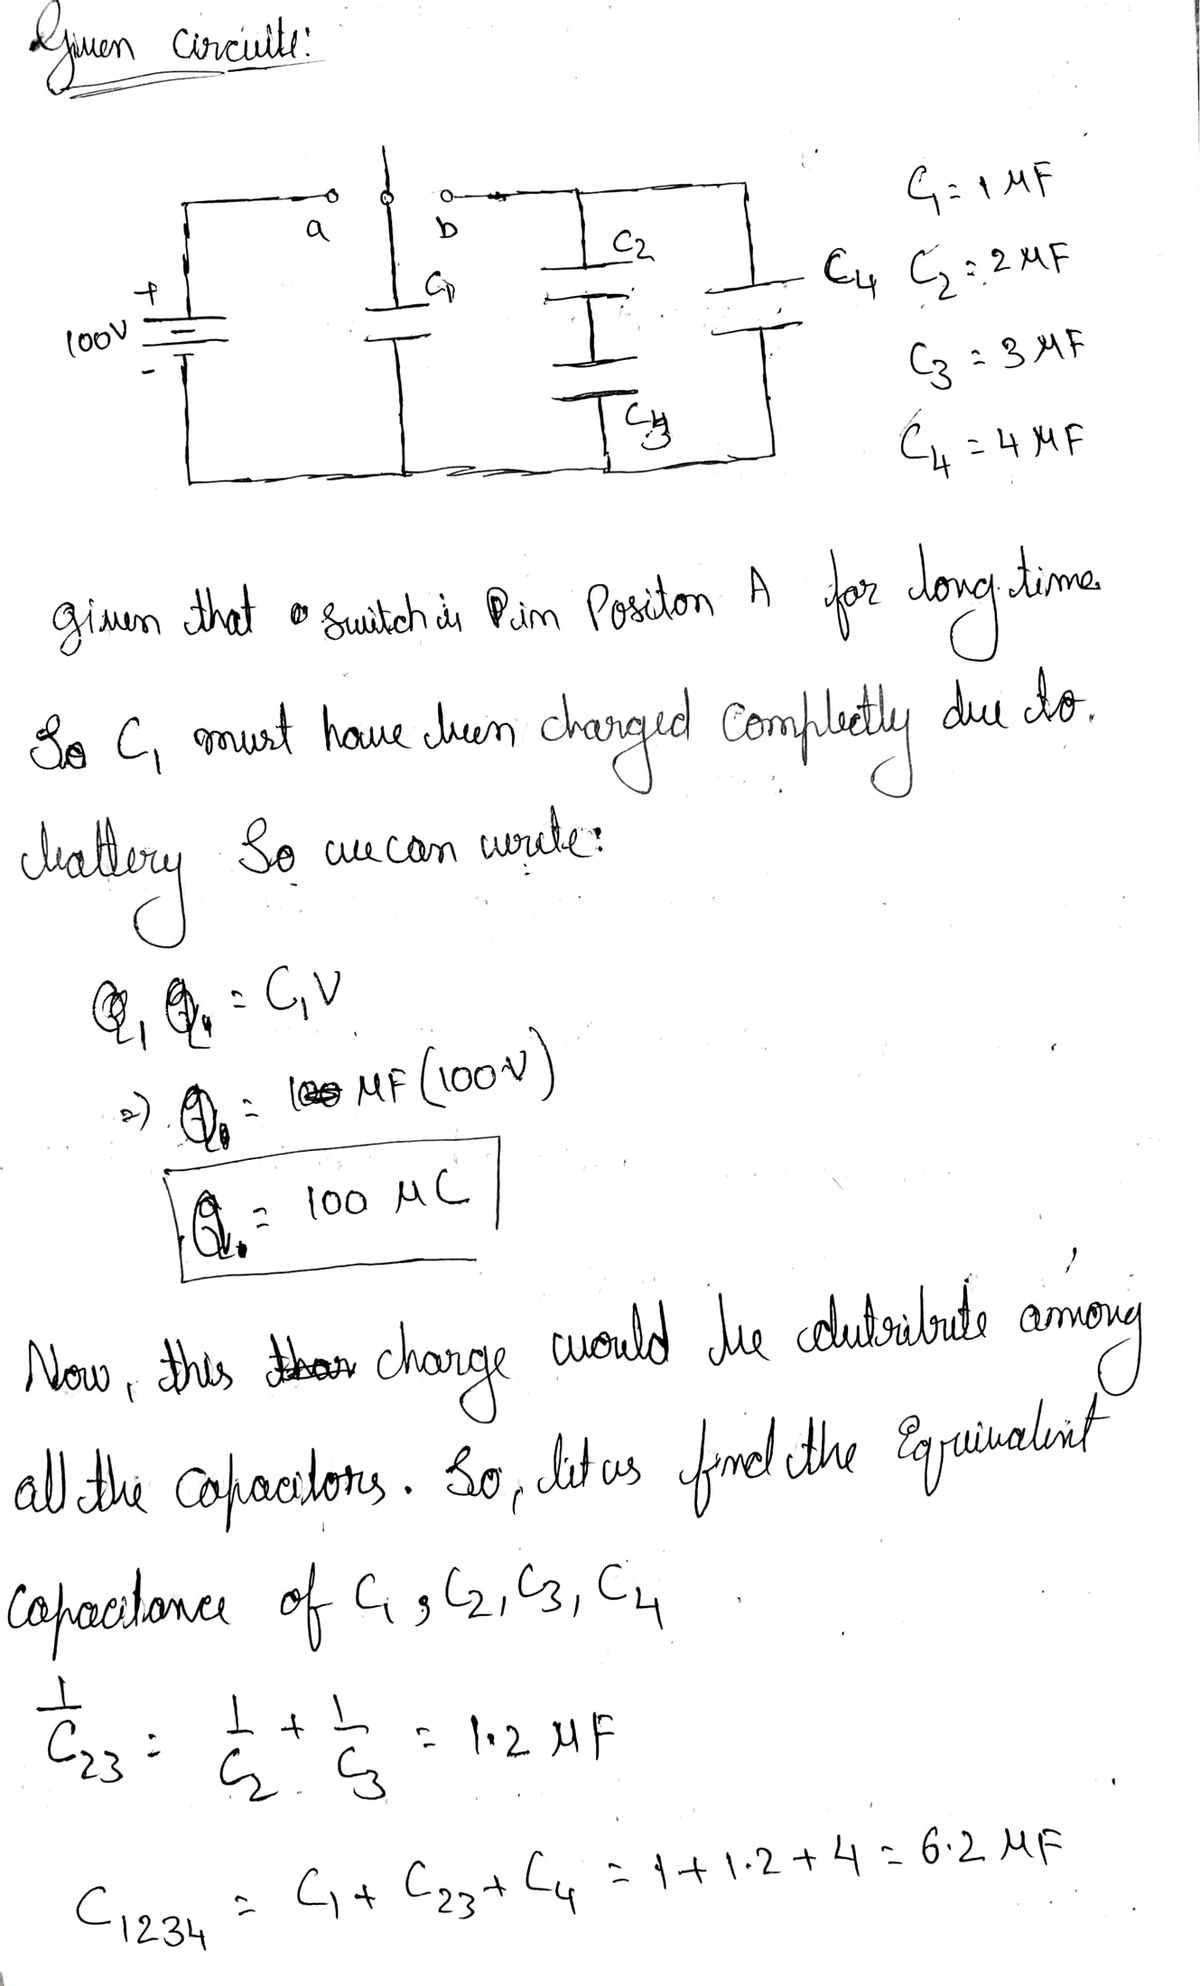 Given Circuite:
a
b
C1
C2
C3
C4
+
100V
-
C1 = 1 MF
C2 = 2 MF
C3 = 3 MF
C4 = 4 MF
given that switch is in Positon A for long time
So C1 must have been charged complectly due to.
battery So we can write:
Q0 = C1V
=> Q0 = 1 MF (100V)
Q0 = 100 MC
Now, this charge would be dutribute among
all the capacitors. So, let us find the Equivalent
capacitance of C1, C2, C3, C4
1/C23 = 1/C2 + 1/C3 = 1.2 MF
C1234 = C1 + C23 + C4 = 1 + 1.2 + 4 = 6.2 MF